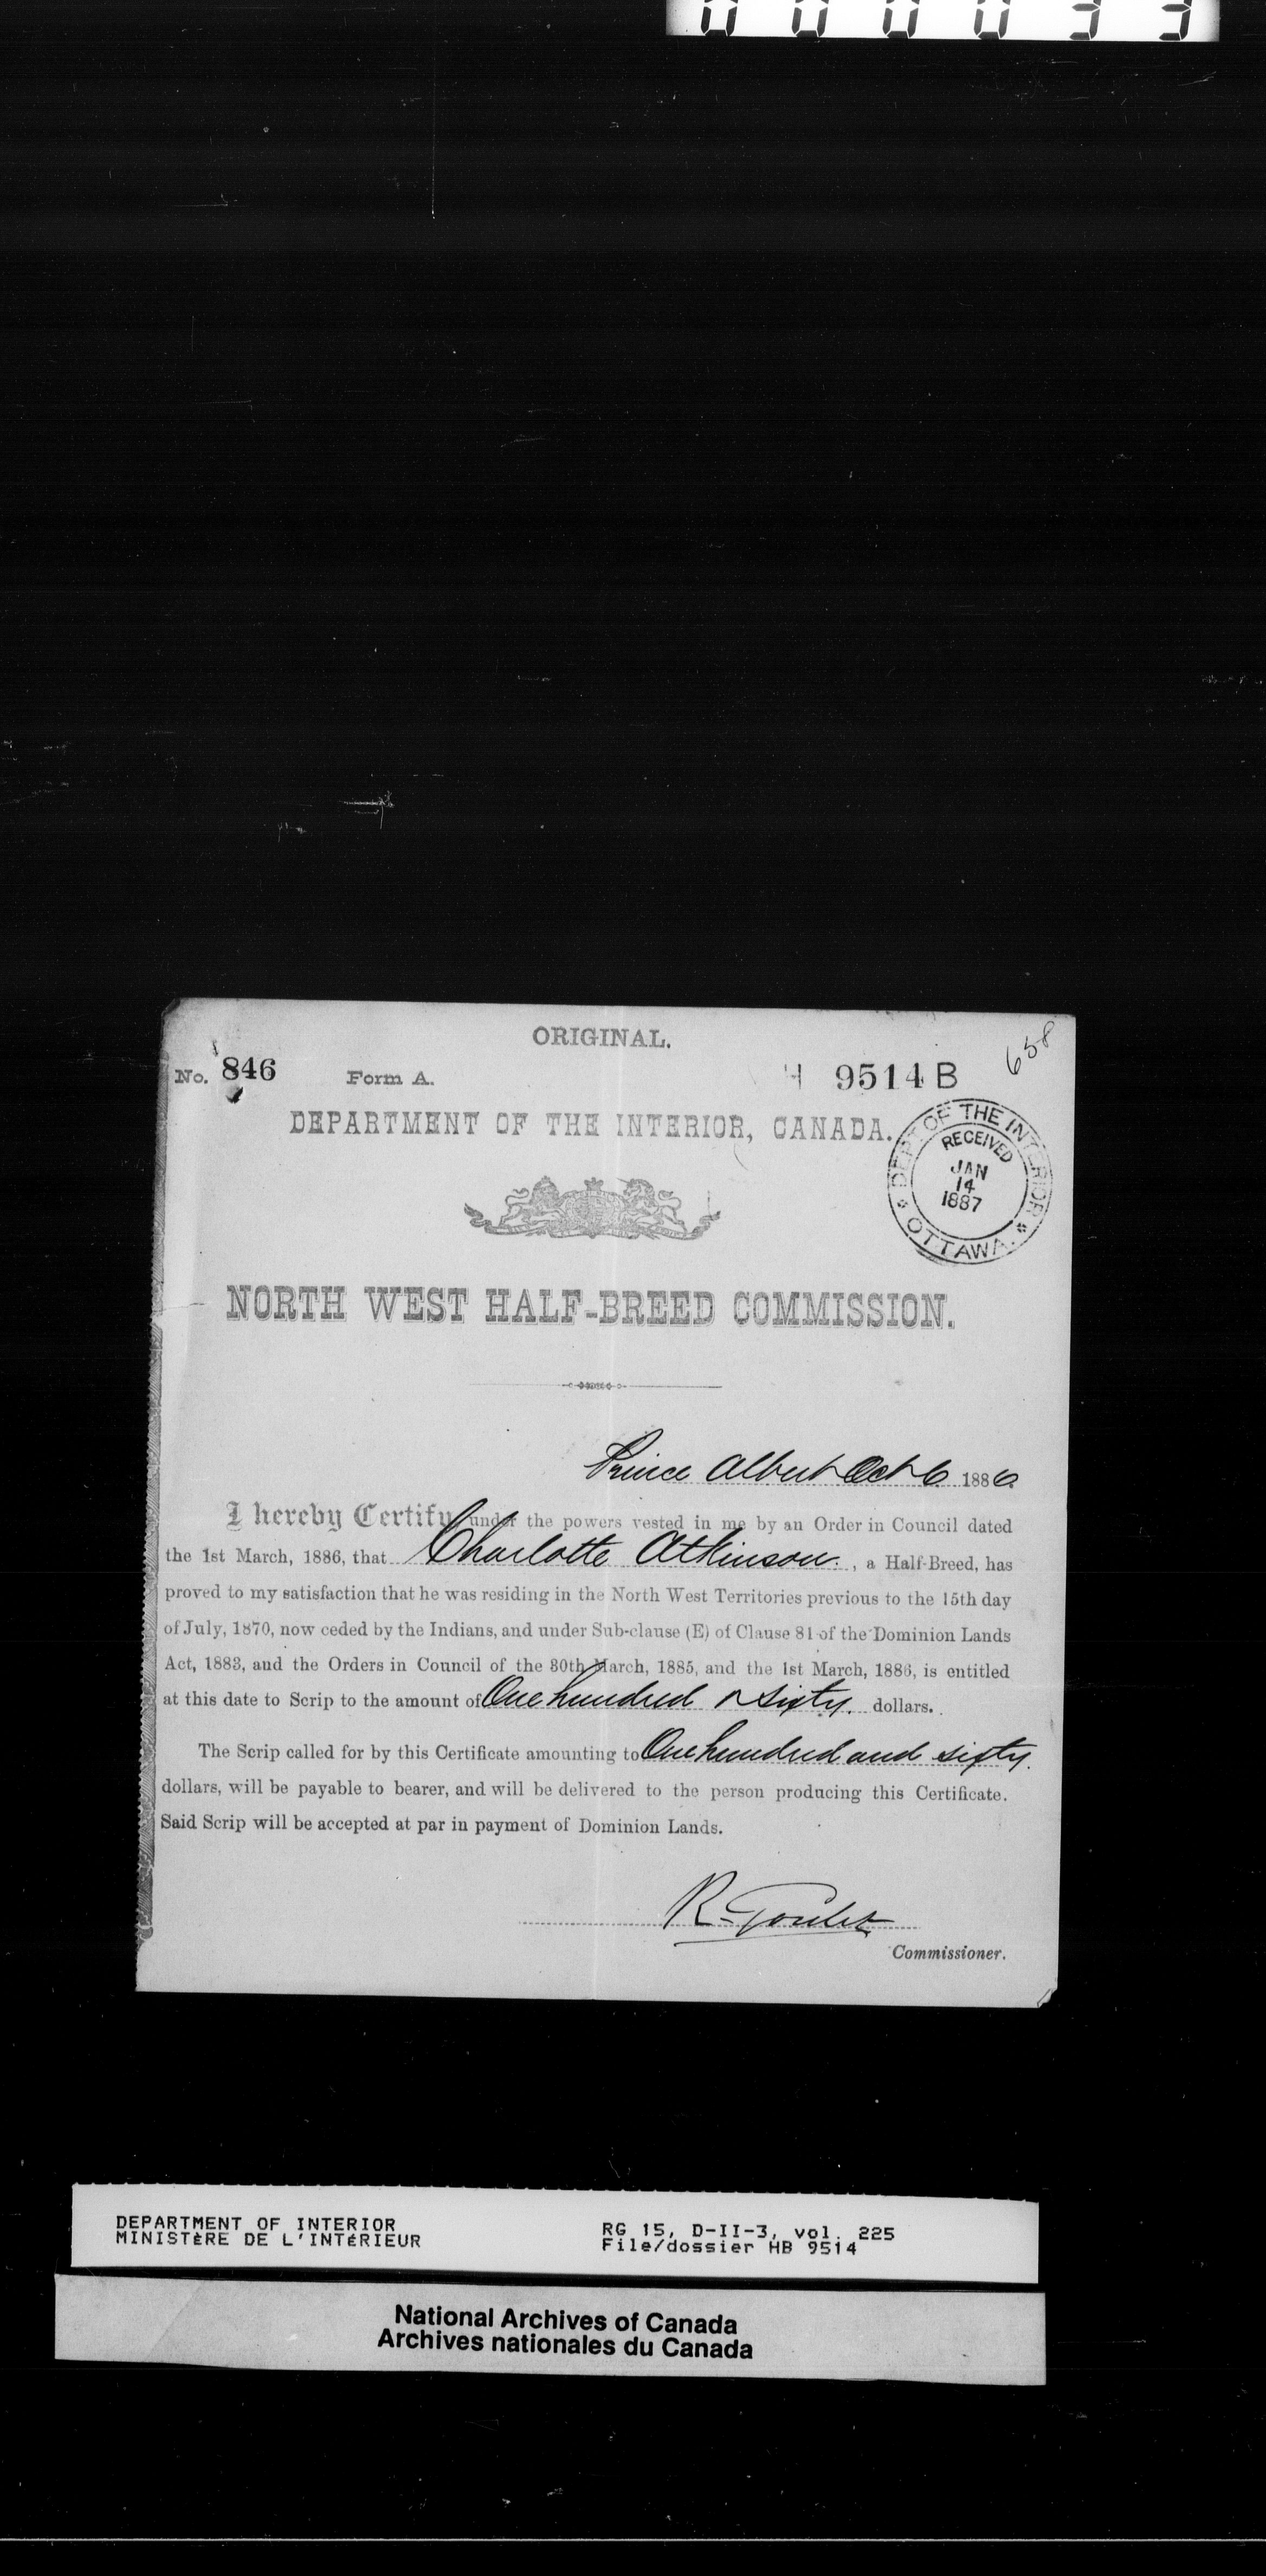 000033
ORIGINAL.
No. 846 Form A. H 9514 B 658
DEPARTMENT OF THE INTERIOR, CANADA.
DEPT. OF THE INTERIOR
RECEIVED
JAN
14
1887
OTTAWA.
NORTH WEST HALF-BREED COMMISSION.
Prince Albert Oct 6 1886.
I hereby Certify under the powers vested in me by an Order in Council dated
the 1st March, 1886, that Charlotte Atkinson, a Half-Breed, has
proved to my satisfaction that he was residing in the North West Territories previous to the 15th day
of July, 1870, now ceded by the Indians, and under Sub-clause (E) of Clause 81 of the Dominion Lands
Act, 1883, and the Orders in Council of the 30th March, 1885, and the 1st March, 1886, is entitled
at this date to Scrip to the amount of One hundred & sixty. dollars.
The Scrip called for by this Certificate amounting to One hundred and sixty.
dollars, will be payable to bearer, and will be delivered to the person producing this Certificate.
Said Scrip will be accepted at par in payment of Dominion Lands.
R. Goulet
Commissioner.
DEPARTMENT OF INTERIOR RG 15, D-II-3, vol. 225
MINISTÈRE DE L'INTÉRIEUR File/dossier HB 9514
National Archives of Canada
Archives nationales du Canada